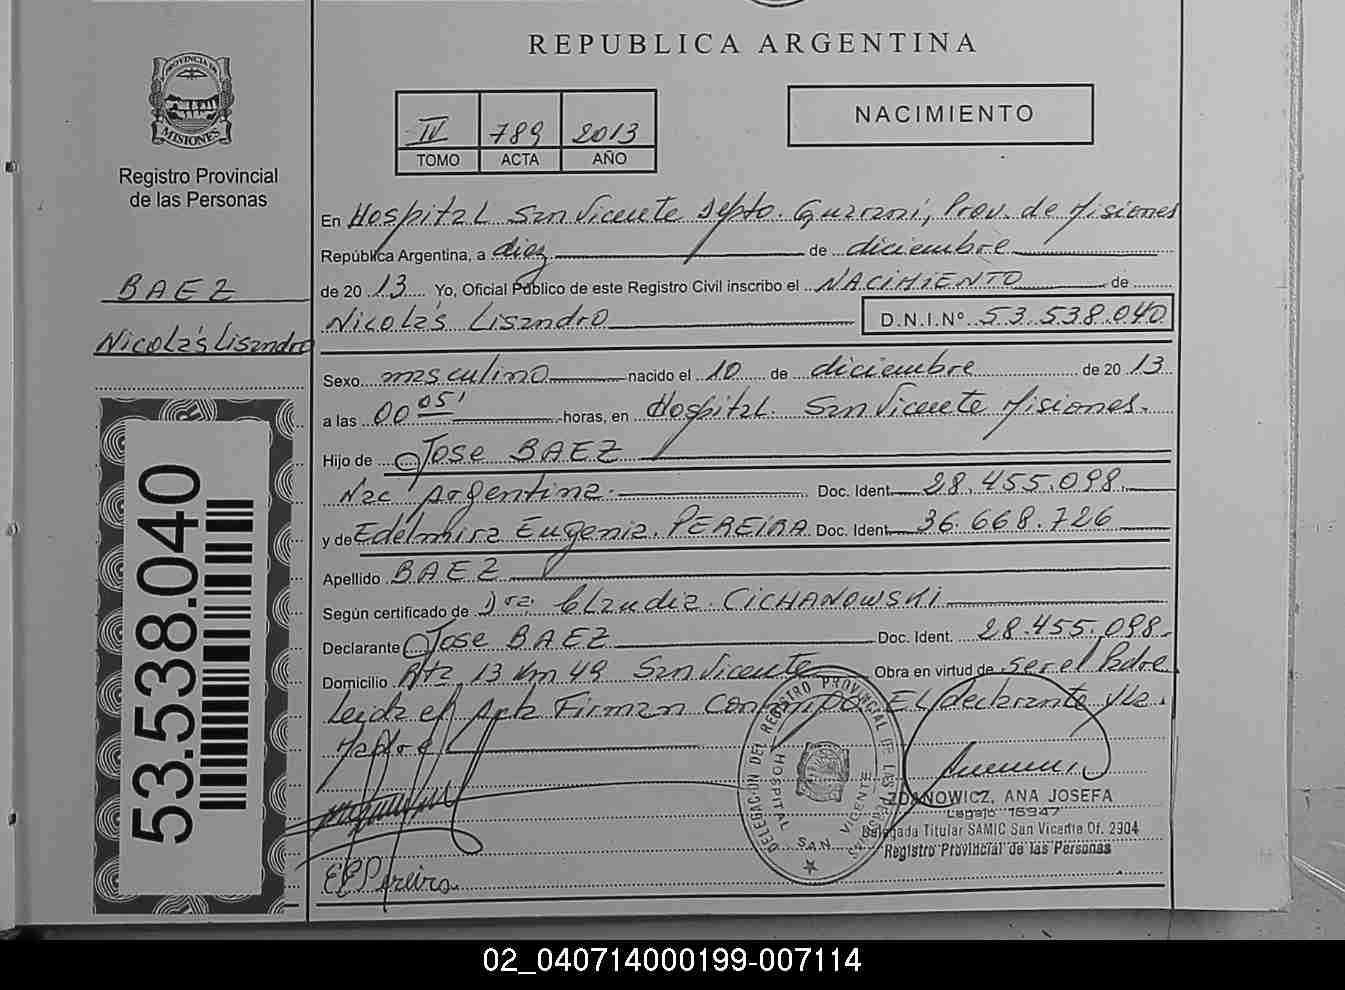 REPUBLICA ARGENTINA
PROVINCIA DE
MISIONES
Registro Provincial
de las Personas
IV 789 2013
TOMO ACTA AÑO
NACIMIENTO
En Hospital San Vicente Dpto. Guarani, Prov. de Misiones
República Argentina, a diez de diciembre
de 2013 Yo, Oficial Público de este Registro Civil inscribo el NACIMIENTO de
Nicolás Lisandro D.N.I.Nº 53.538.040
BAEZ
Nicolás Lisandro
Sexo masculino nacido el 10 de diciembre de 2013
a las 00 05' horas, en Hospital San Vicente Misiones.
Hijo de Jose BAEZ
Nac. Argentina. Doc. Ident. 28.455.098.
y de Edelmira Eugenia. PEREIRA Doc. Ident. 36.668.726
Apellido BAEZ
Según certificado de Dra. Claudia. CICHANOWSKI
Declarante Jose BAEZ Doc. Ident. 28.455.098.
Domicilio Rta 13 Km 49 San Vicente Obra en virtud de ser el Padre
Leida el Acta Firman Conmigo El declarante y la
Madre
53.538.040
DELEGACION DEL REGISTRO PROVINCIAL DE LAS PERSONAS
HOSPITAL SAN VICENTE
ZDANOWICZ, ANA JOSEFA
Legajo 16947
Delegada Titular SAMIC San Vicente Of. 2904
Registro Provincial de las Personas
EEPereira
02_040714000199-007114